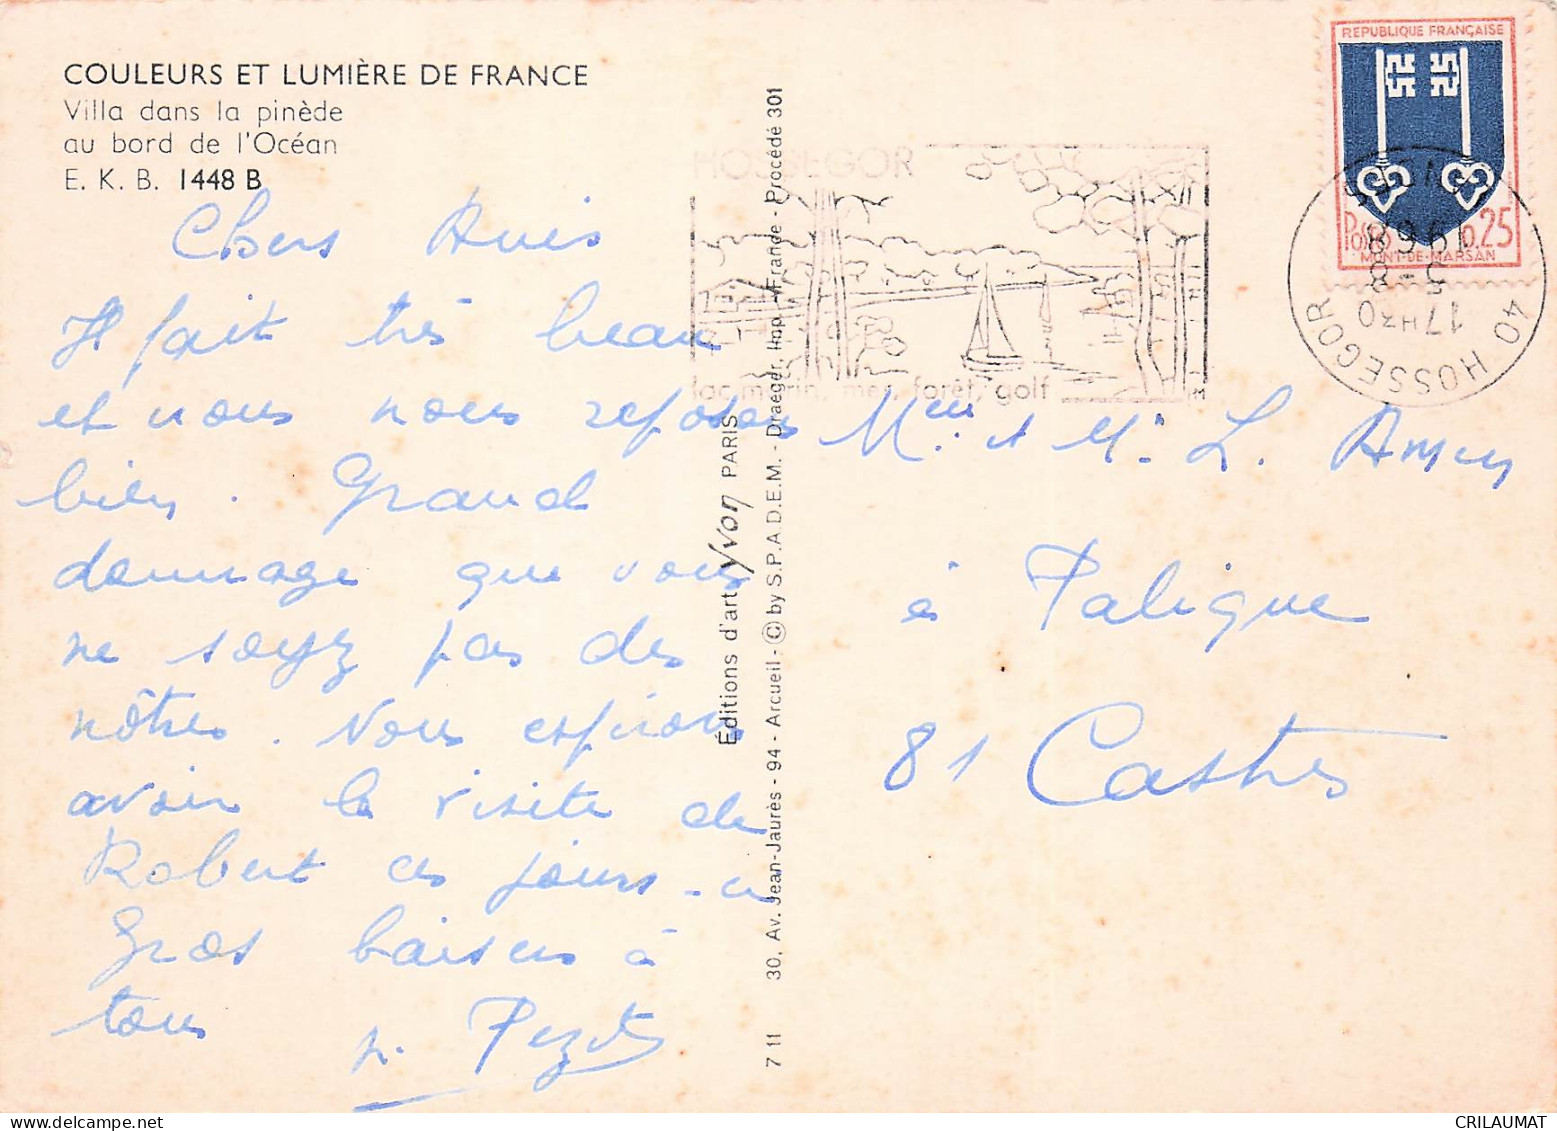 COULEURS ET LUMIÈRE DE FRANCE
Villa dans la pinède
au bord de l'Océan
E. K. B. 1448 B
Chers Amis
Il fait très beau
et nous nous reposons
bien. Grand
dommage que vous
ne soyez pas des
nôtres. Nous espérons
avoir la visite de
Robert ces jours-ci
Gros baisers à
tous
Éditions d'art Yvon PARIS
7 11 30, Av. Jean-Jaurès - 94 - Arcueil - © by S.P.A.D.E.M. - Draeger, Imp. - France - Procédé 301
HOSSEGOR
lac marin, mer, forêt, golf
REPUBLIQUE FRANÇAISE
Postes 0,25
MONT-DE-MARSAN
17H30
5-8
1968
40 HOSSEGOR
Mme et M. L.
à Palique
81 Castres
CRILAUMAT